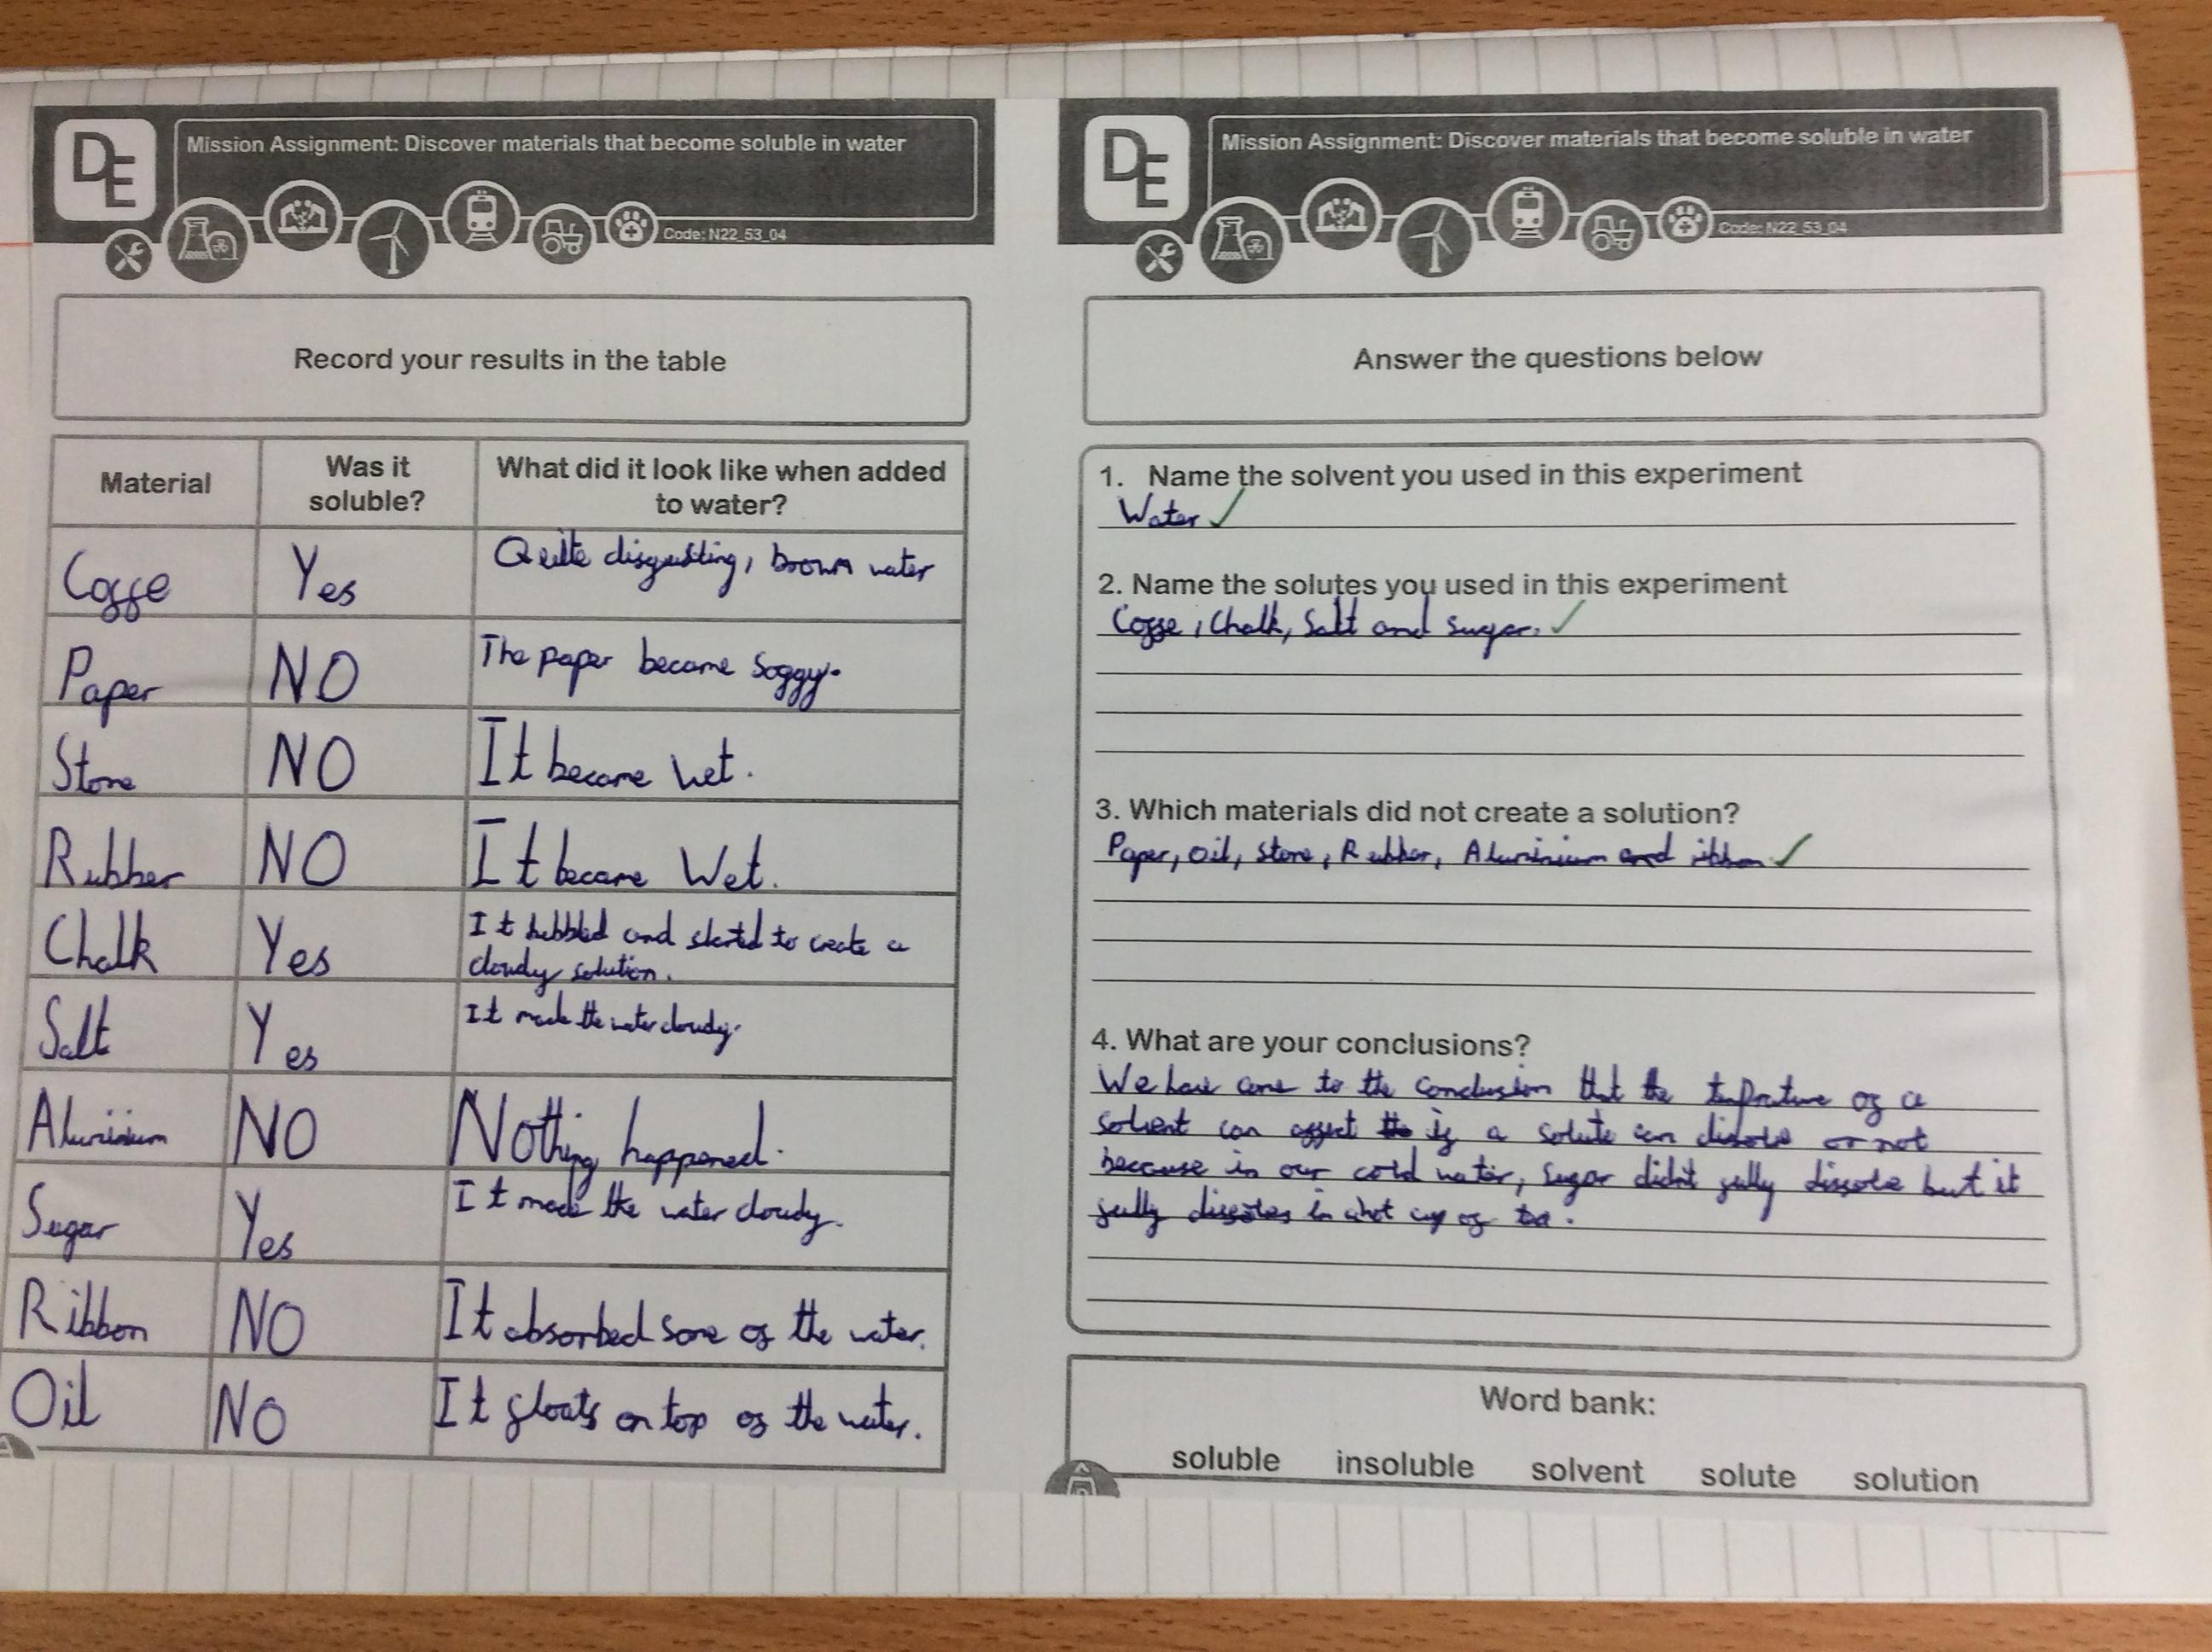 DE
Mission Assignment: Discover materials that become soluble in water
Code: N22_53_04
Record your results in the table
Material
Was it
soluble?
What did it look like when added
to water?
Coffe
Yes
Quite disgusting, brown water
Paper
NO
The paper became soggy.
Stone
NO
It became wet.
Rubber
NO
It became Wet.
Chalk
Yes
It bubbled and started to create a
cloudy solution.
Salt
Yes
It made the water cloudy.
Aluminium
NO
Nothing happened.
Sugar
Yes
It made the water cloudy.
Ribbon
NO
It absorbed some of the water.
Oil
NO
It floats on top of the water.
DE
Mission Assignment: Discover materials that become soluble in water
Code: N22_53_04
Answer the questions below
1. Name the solvent you used in this experiment
Water ✓
2. Name the solutes you used in this experiment
Coffe, Chalk, Salt and sugar. ✓
3. Which materials did not create a solution?
Paper, oil, stone, Rubber, Aluminium and ribbon ✓
4. What are your conclusions?
We have come to the conclusion that the of a
solvent can affect if a solute can or not
because in our cold water, sugar didn't fully dissole but it
fully in a hot cup of tea.
Word bank:
soluble insoluble solvent solute solution